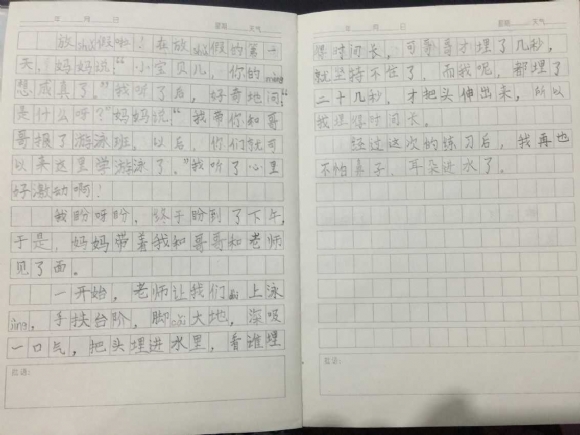 年 月 日 星期 天气
放shǔ假啦！在放shǔ假的第一
天，妈妈说：“小宝贝儿，你的mèng
想成真了。”我听了后，好奇地问：“
是什么呀？”妈妈说：“我带你和哥
哥报了游泳班，以后，你们就可
以来这里学游泳了。”我听了心里
好激动啊！
我盼呀盼，终于盼到了下午，
于是，妈妈带着我和哥哥和老师
见了面。
一开始，老师让我们 上泳
jìng，手扶台阶，脚 大地，深吸
一口气，把头埋进水里，看谁埋
批语：
年 月 日 星期 天气
得时间长，可哥哥才埋了几秒，
就坚持不住了，而我呢，都埋了
二十几秒，才把头伸出来，所以
我埋得时间长。
经过这次的练习后，我再也
不怕鼻子、耳朵进水了。
批语：